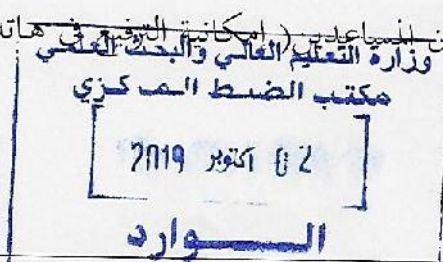 المساعدين (إمكانية الترفيع في هاته
وزارة التعليم العالي والبحث العلمي
مكتب الضبط المركزي
02 أكتوبر 2019
الـــــوارد